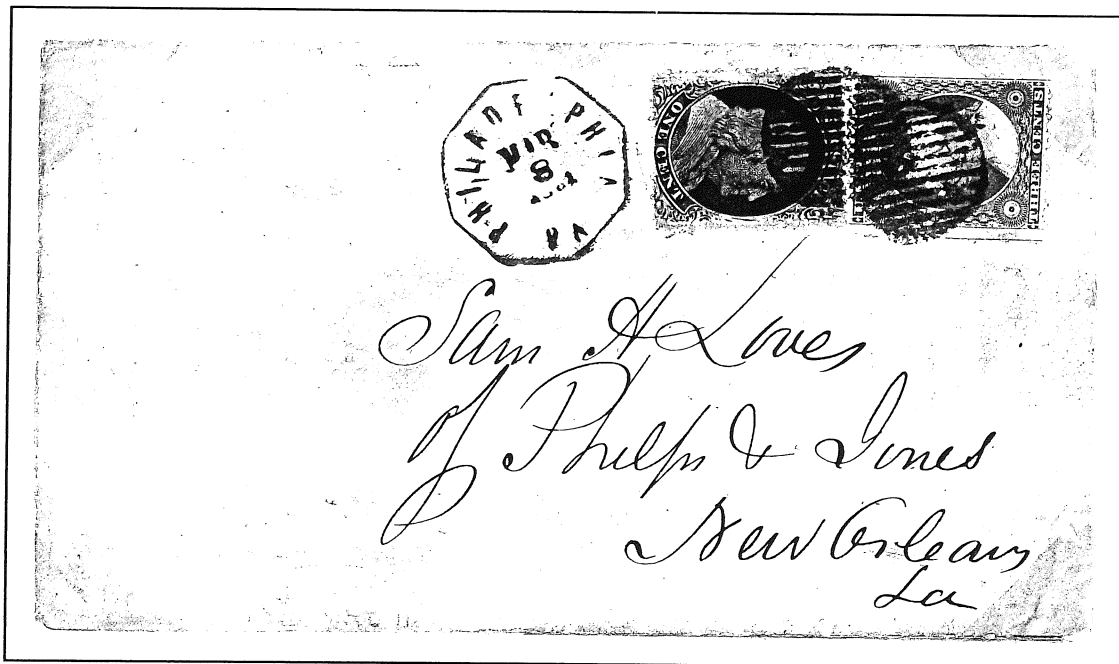 PHILADELPHIA PA
MAR
8
1861
ONE CENT
THREE CENTS
Sam H Loves
of Phelps & Jones
New Orleans
La